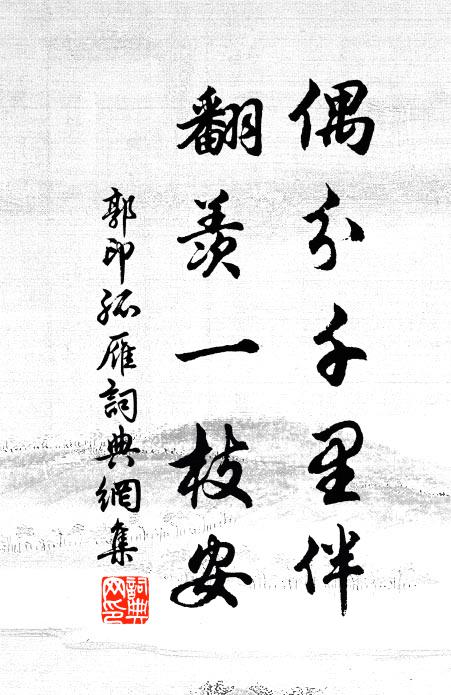 偶分千里伴
翻羨一枝安
郭印孤雁詞典網集
詞典
网